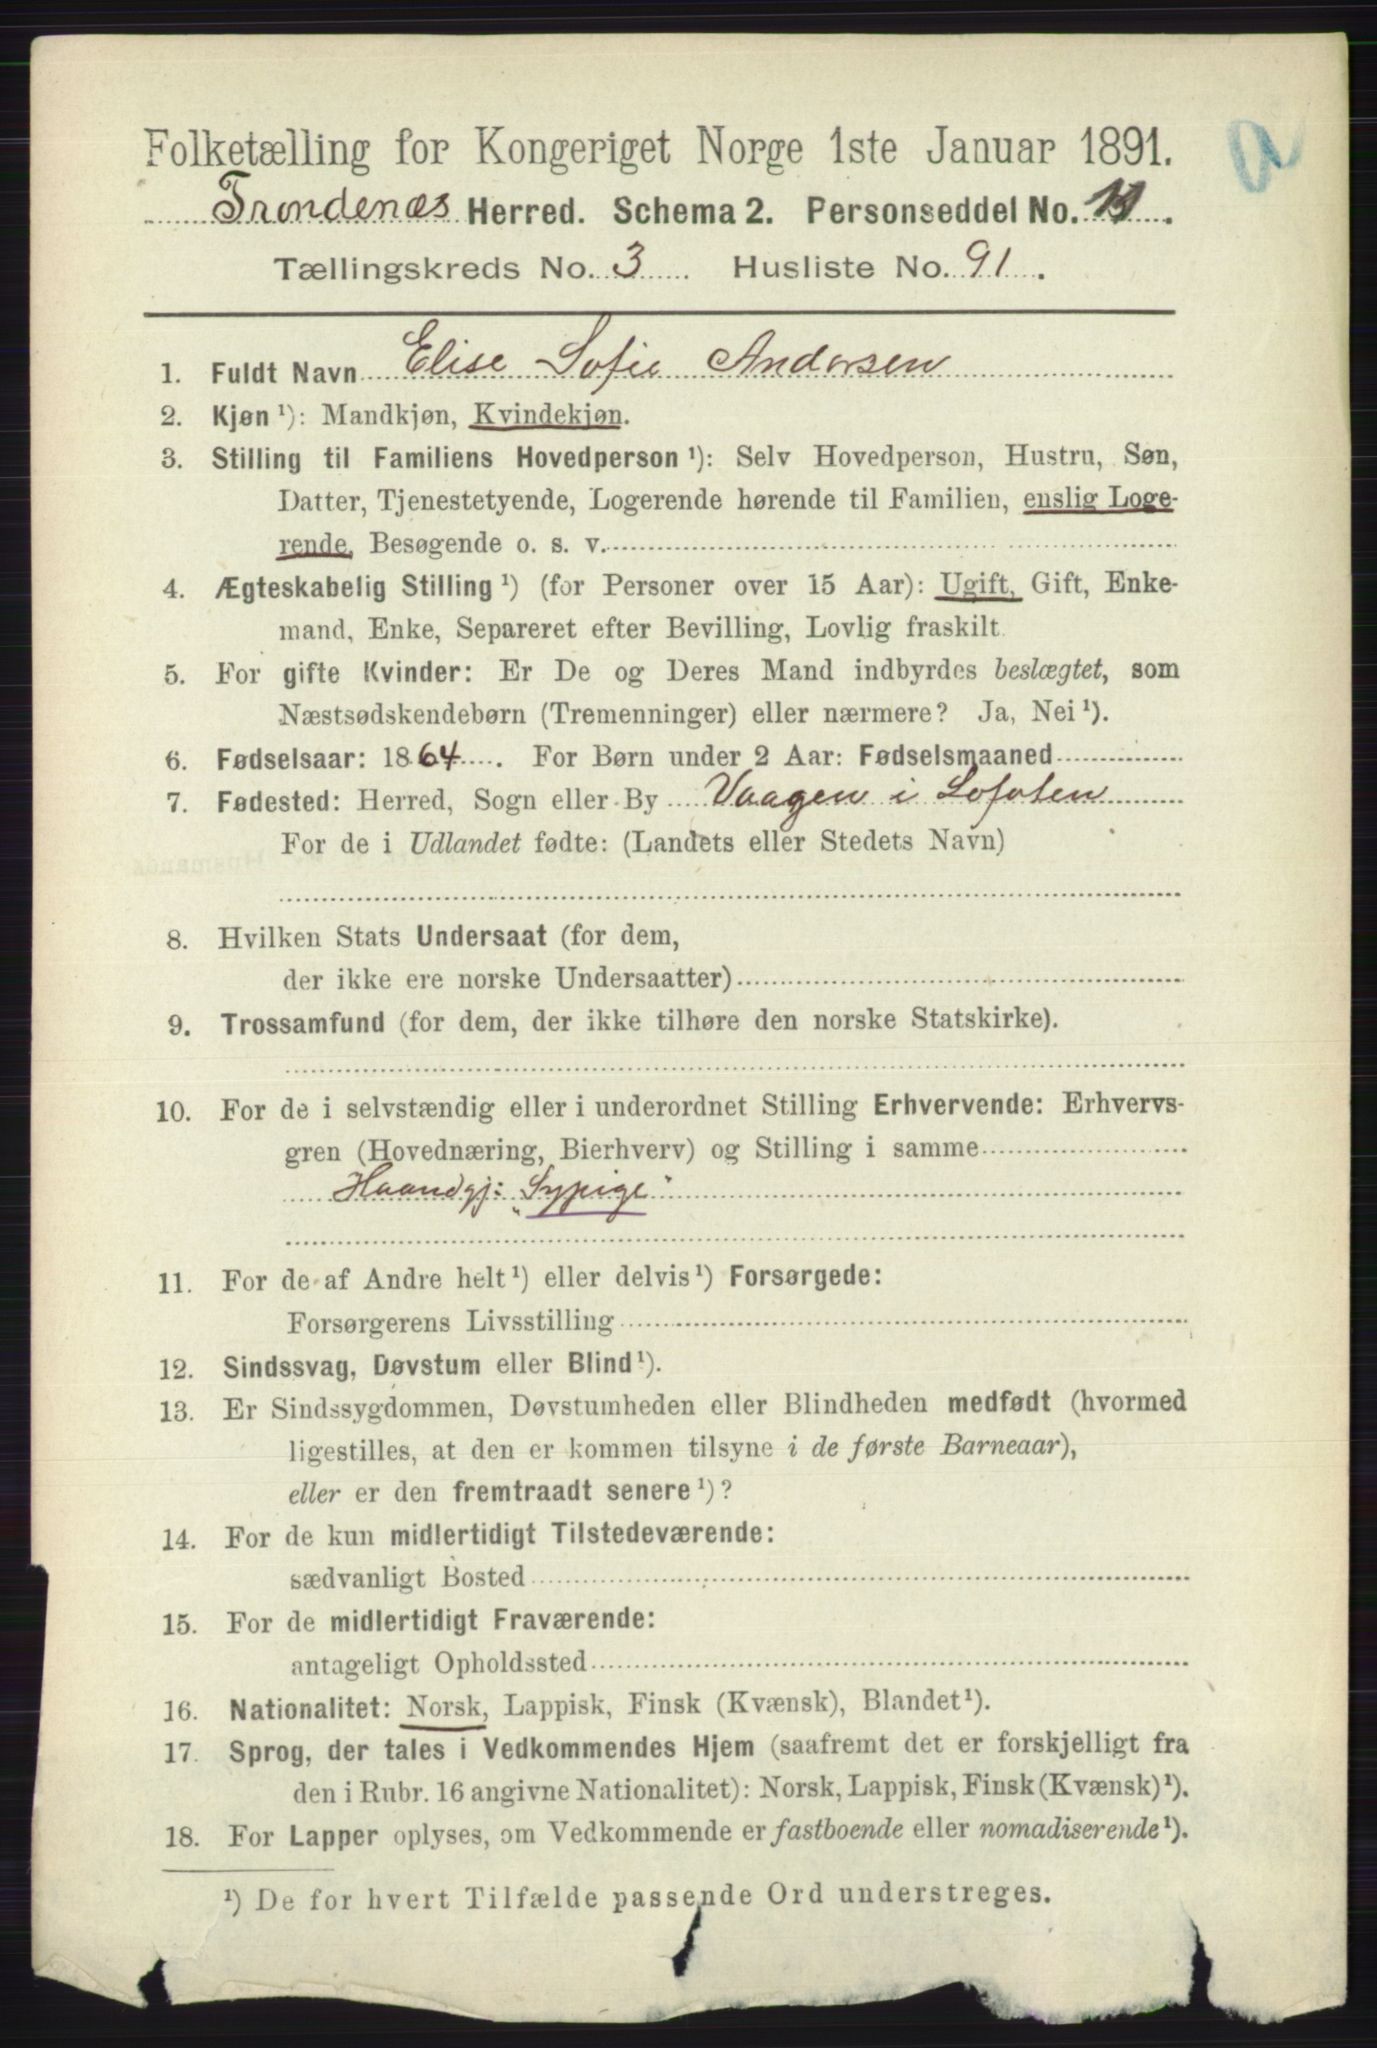 Folketælling for Kongeriget Norge 1ste Januar 1891.
Trondenæs Herred. Schema 2. Personseddel No. 11.
Tællingskreds No. 3. Husliste No. 91.
1. Fuldt Navn Elise Sofie Andersen
2. Kjøn ¹): Mandkjøn, Kvindekjøn.
3. Stilling til Familiens Hovedperson ¹): Selv Hovedperson, Hustru, Søn,
Datter, Tjenestetyende, Logerende hørende til Familien, enslig Loge-
rende, Besøgende o. s. v.
4. Ægteskabelig Stilling ¹) (for Personer over 15 Aar): Ugift, Gift, Enke-
mand, Enke, Separeret efter Bevilling, Lovlig fraskilt
5. For gifte Kvinder: Er De og Deres Mand indbyrdes beslægtet, som
Næstsødskendebørn (Tremenninger) eller nærmere? Ja, Nei ¹).
6. Fødselsaar: 1864. For Børn under 2 Aar: Fødselsmaaned
7. Fødested: Herred, Sogn eller By Vaagen i Lofoten
For de i Udlandet fødte: (Landets eller Stedets Navn)
8. Hvilken Stats Undersaat (for dem,
der ikke ere norske Undersaatter)
9. Trossamfund (for dem, der ikke tilhøre den norske Statskirke).
10. For de i selvstændig eller i underordnet Stilling Erhvervende: Erhvervs-
gren (Hovednæring, Bierhverv) og Stilling i samme
Haandgj: "Sypige"
11. For de af Andre helt ¹) eller delvis ¹) Forsørgede:
Forsørgerens Livsstilling
12. Sindssvag, Døvstum eller Blind ¹).
13. Er Sindssygdommen, Døvstumheden eller Blindheden medfødt (hvormed
ligestilles, at den er kommen tilsyne i de første Barneaar),
eller er den fremtraadt senere ¹)?
14. For de kun midlertidigt Tilstedeværende:
sædvanligt Bosted
15. For de midlertidigt Fraværende:
antageligt Opholdssted
16. Nationalitet: Norsk, Lappisk, Finsk (Kvænsk), Blandet ¹).
17. Sprog, der tales i Vedkommendes Hjem (saafremt det er forskjelligt fra
den i Rubr. 16 angivne Nationalitet): Norsk, Lappisk, Finsk (Kvænsk) ¹).
18. For Lapper oplyses, om Vedkommende er fastboende eller nomadiserende ¹).
¹) De for hvert Tilfælde passende Ord understreges.